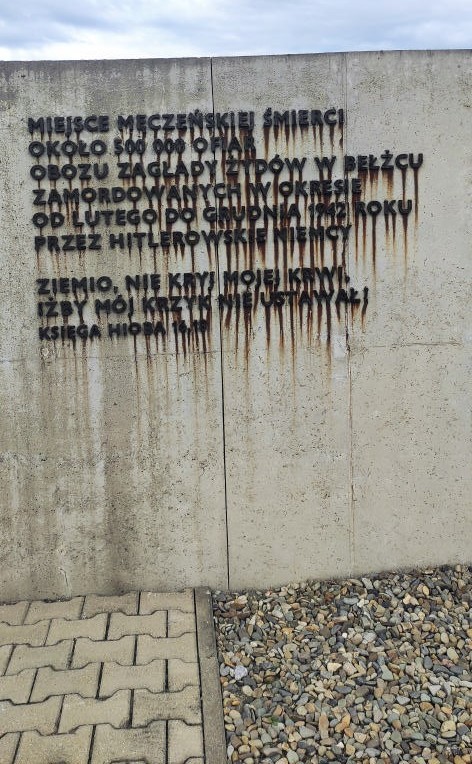 MIEJSCE MĘCZEŃSKIEJ ŚMIERCI
OKOŁO 500 000 OFIAR
OBOZU ZAGŁADY ŻYDÓW W BEŁŻCU
ZAMORDOWANYCH W OKRESIE
OD LUTEGO DO GRUDNIA 1942 ROKU
PRZEZ HITLEROWSKIE NIEMCY
ZIEMIO, NIE KRYJ MOJEJ KRWI,
IŻBY MÓJ KRZYK NIE USTAWAŁ!
KSIĘGA HIOBA 16,18